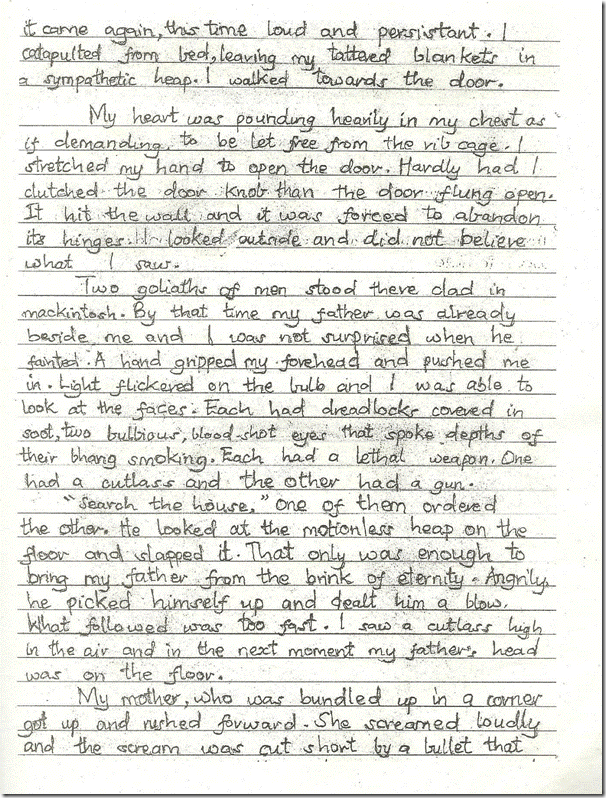 it came again, this time loud and persistant. I
catapulted from bed, leaving my tattered blankets in
a sympathetic heap. I walked towards the door.
My heart was pounding heavily in my chest as
if demanding, to be let free from the rib cage. I
stretched my hand to open the door. Hardly had I
clutched the door knob than the door flung open.
It hit the wall and it was forced to abandon
its hinges. I looked outside and did not believe
what I saw.
Two goliaths of men stood there clad in
mackintosh. By that time my father was already
beside me and I was not surprised when he
fainted. A hand gripped my forehead and pushed me
in. Light flickered on the bulb and I was able to
look at the faces. Each had dreadlocks covered in
soot, two bulbious, blood-shot eyes that spoke depths of
their bhang smoking. Each had a lethal weapon. One
had a cutlass and the other had a gun.
"Search the house," one of them ordered
the other. He looked at the motionless heap on the
floor and slapped it. That only was enough to
bring my father from the brink of eternity. Angrily,
he picked himself up and dealt him a blow.
What followed was too fast. I saw a cutlass high
in the air and in the next moment my father's head
was on the floor.
My mother, who was bundled up in a corner
got up and rushed forward. She screamed loudly
and the scream was cut short by a bullet that